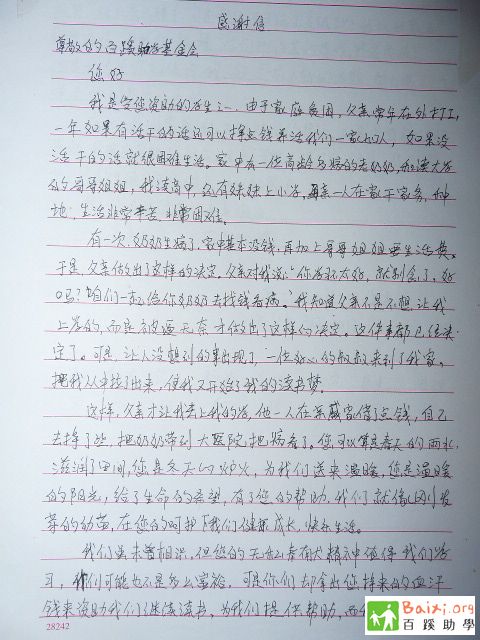 感谢信
尊敬的百蹊助学基金会
您好
我是受您资助的学生之一,由于家庭贫困,父亲常年在外打工,
一年如果有活干的话还可以挣点钱养活我们一家七八口人,如果没
活干的话就很困难生活。家中有一位高龄多病的老奶奶,和读大学
的哥哥姐姐,我读高中,还有妹妹上小学,母亲一人在家干家务,种
地,生活非常辛苦,非常困难。
有一次,奶奶生病了,家中基本没钱,再加上哥哥姐姐要生活费。
于是父亲做出了这样的决定。父亲对我说:“你学习不太好,就别念了,好
吗?咱们一起给你奶奶去找钱看病。”我知道父亲不是不想让我
上学的,而是被逼无奈才做出了这样的决定。这件事都已经决
定了。可是,让人没想到的事出现了,一位好心的叔叔来到了我家。
把我从中拉了出来,使我又开始了我的读书梦。
这样,父亲才让我去上我的学,他一人在亲戚家借点钱,自己
去挣了些,把奶奶带到大医院把病看了。您可以算是春天的雨水,
滋润了田间,您是冬天的炉火,为我们送来温暖,您是温暖
的阳光,给了生命的希望,有了您的帮助,我们就像刚刚发
芽的幼苗,在您的呵护下我们健康成长,快乐生活。
我们虽未曾相识,但您的无私奉献精神值得我们学
习,你们可能也不是多么富裕,可是你们却拿出您挣来的血汗
钱来资助我们继续读书,为我们提供帮助,
28242
Baixi.org
百蹊助學